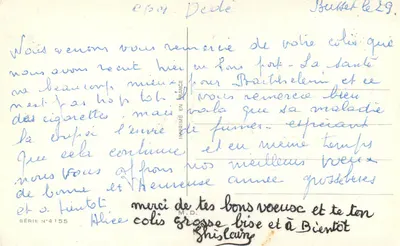 chez Dédé
Busset le 29.
Nous venons vous remercié de votre colis que
nous avons recut hier en bons port. La santé
va beaucoup mieux pour Barthelemi et ce
n'est pas trop tôt. Il vous remercie bien
des cigarettes. mais voila que sa maladie
la coupé l'envie de fumer. espérant
que cela continue et en même temps
nous vous offrons nos meilleurs voeux
de bonne et heureuse année grosses bises
et a bientot
Alice
merci de tes bons voeux et te ton
colis grosse bise et à Bientôt
Ghislaine
SÉRIE N° 8155